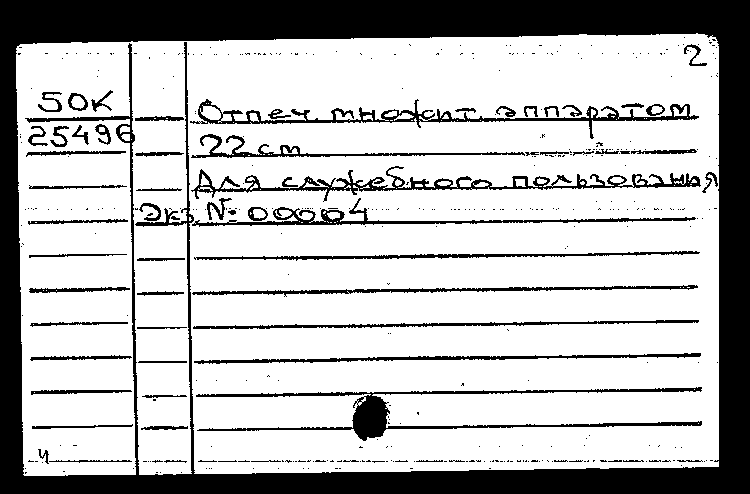 2
50К Отпеч. множит. аппаратом
25496 22 см
Для служебного пользования
Экз. № 00004
ч